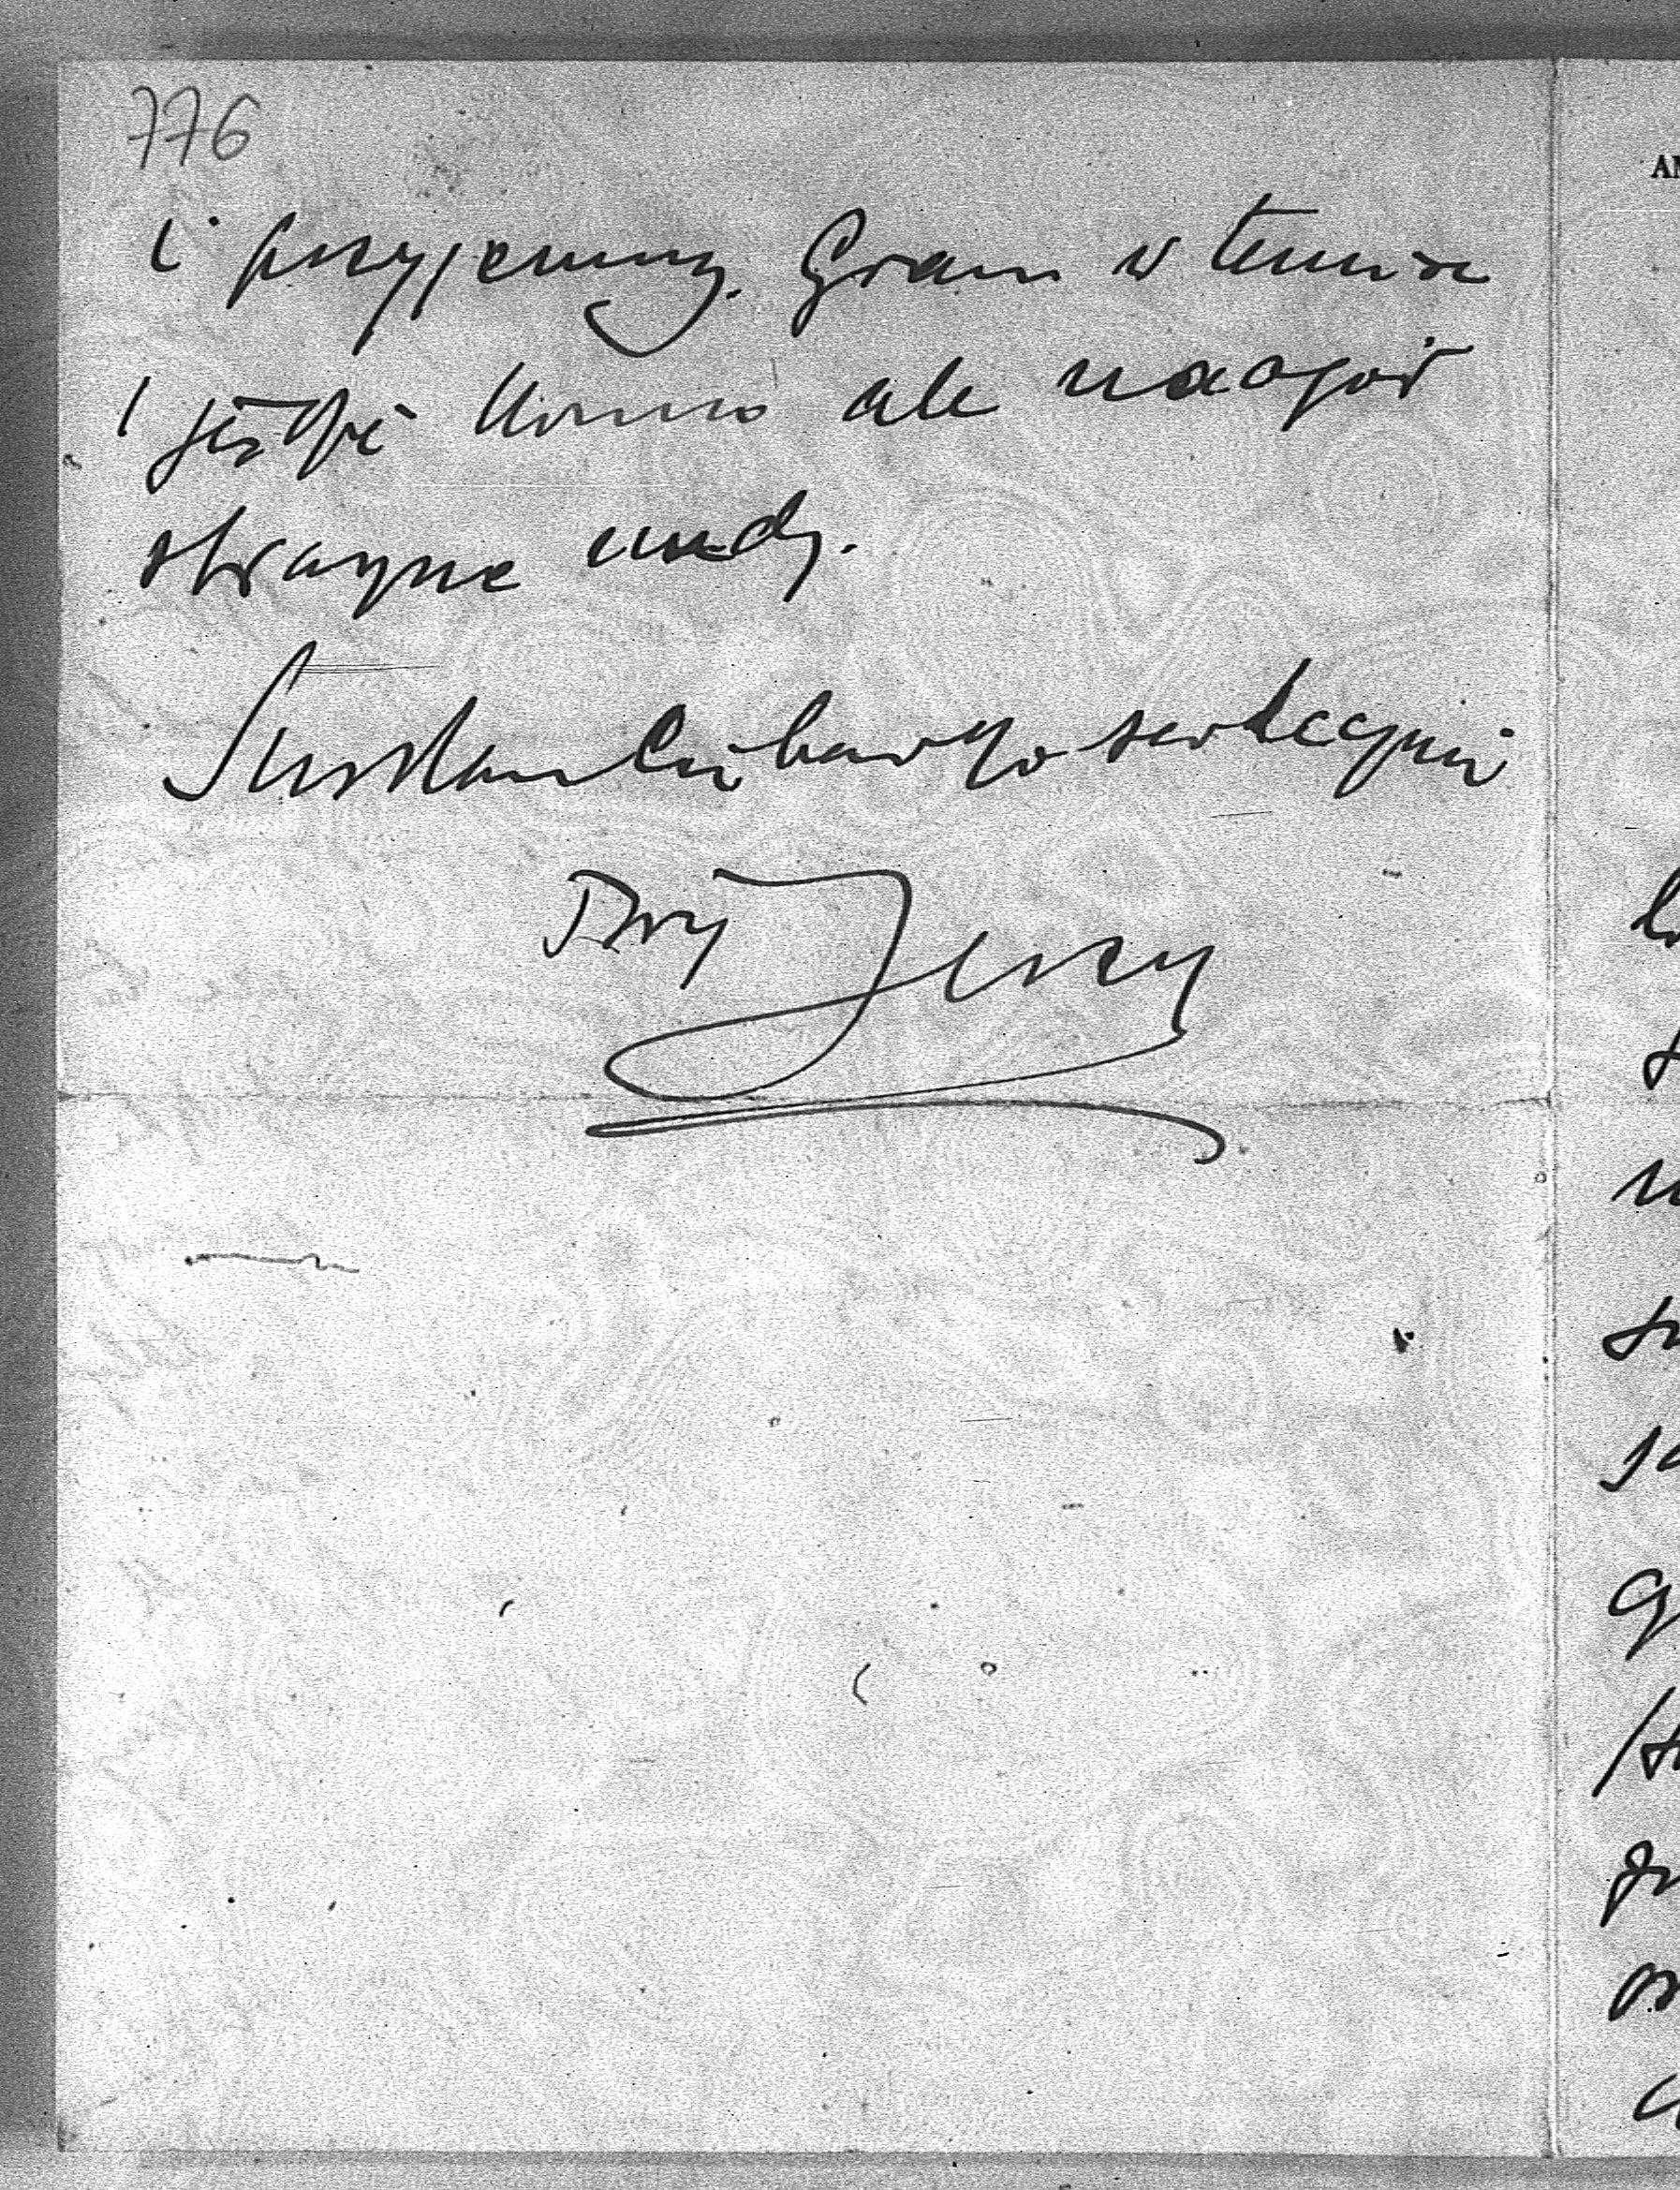 776
i przyjemny. Gram w tenisa
i jeżdżę konno ale naogół
straszne nudy.
Ściskam Cię bardzo serdecznie
Twój Jerzy